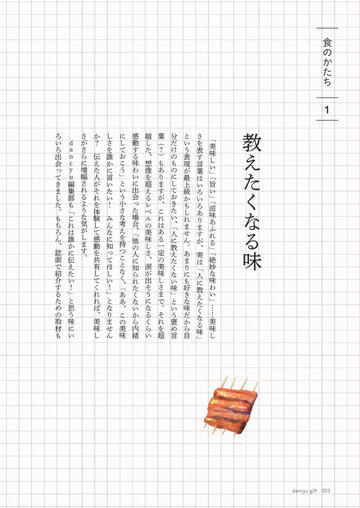 食のかたち
1
教えたくなる味
「美味しい」「旨い」「滋味あふれる」「絶妙な味わい」……美味し
さを表す言葉はいろいろありますが、実は「人に教えたくなる味」
という表現が最上級かもしれません。あまりにも好きな味だから自
分だけのものにしておきたい、「人に教えたくない味」という褒め言
葉（？）もありますが、これはある一定の美味しさまで。それを超
越した、想像を超えるレベルの美味しさ、涙が出そうになるくらい
感動する味わいに出会った場合、「他の人に知られたくないから内緒
にしておこう」という小さな考えを持つことなく、「ああ、この美味
しさを誰かに言いたい！　みんなに知ってほしい！」となりません
か？　伝えた人がそれを体験して感動を共有してくれれば、美味し
さがさらに増幅されるような気がします。
dancyu編集部も「これは誰かに伝えたい！」と思う味にい
ろいろ出会ってきました。もちろん、誌面で紹介するための取材も
dancyu gift 003